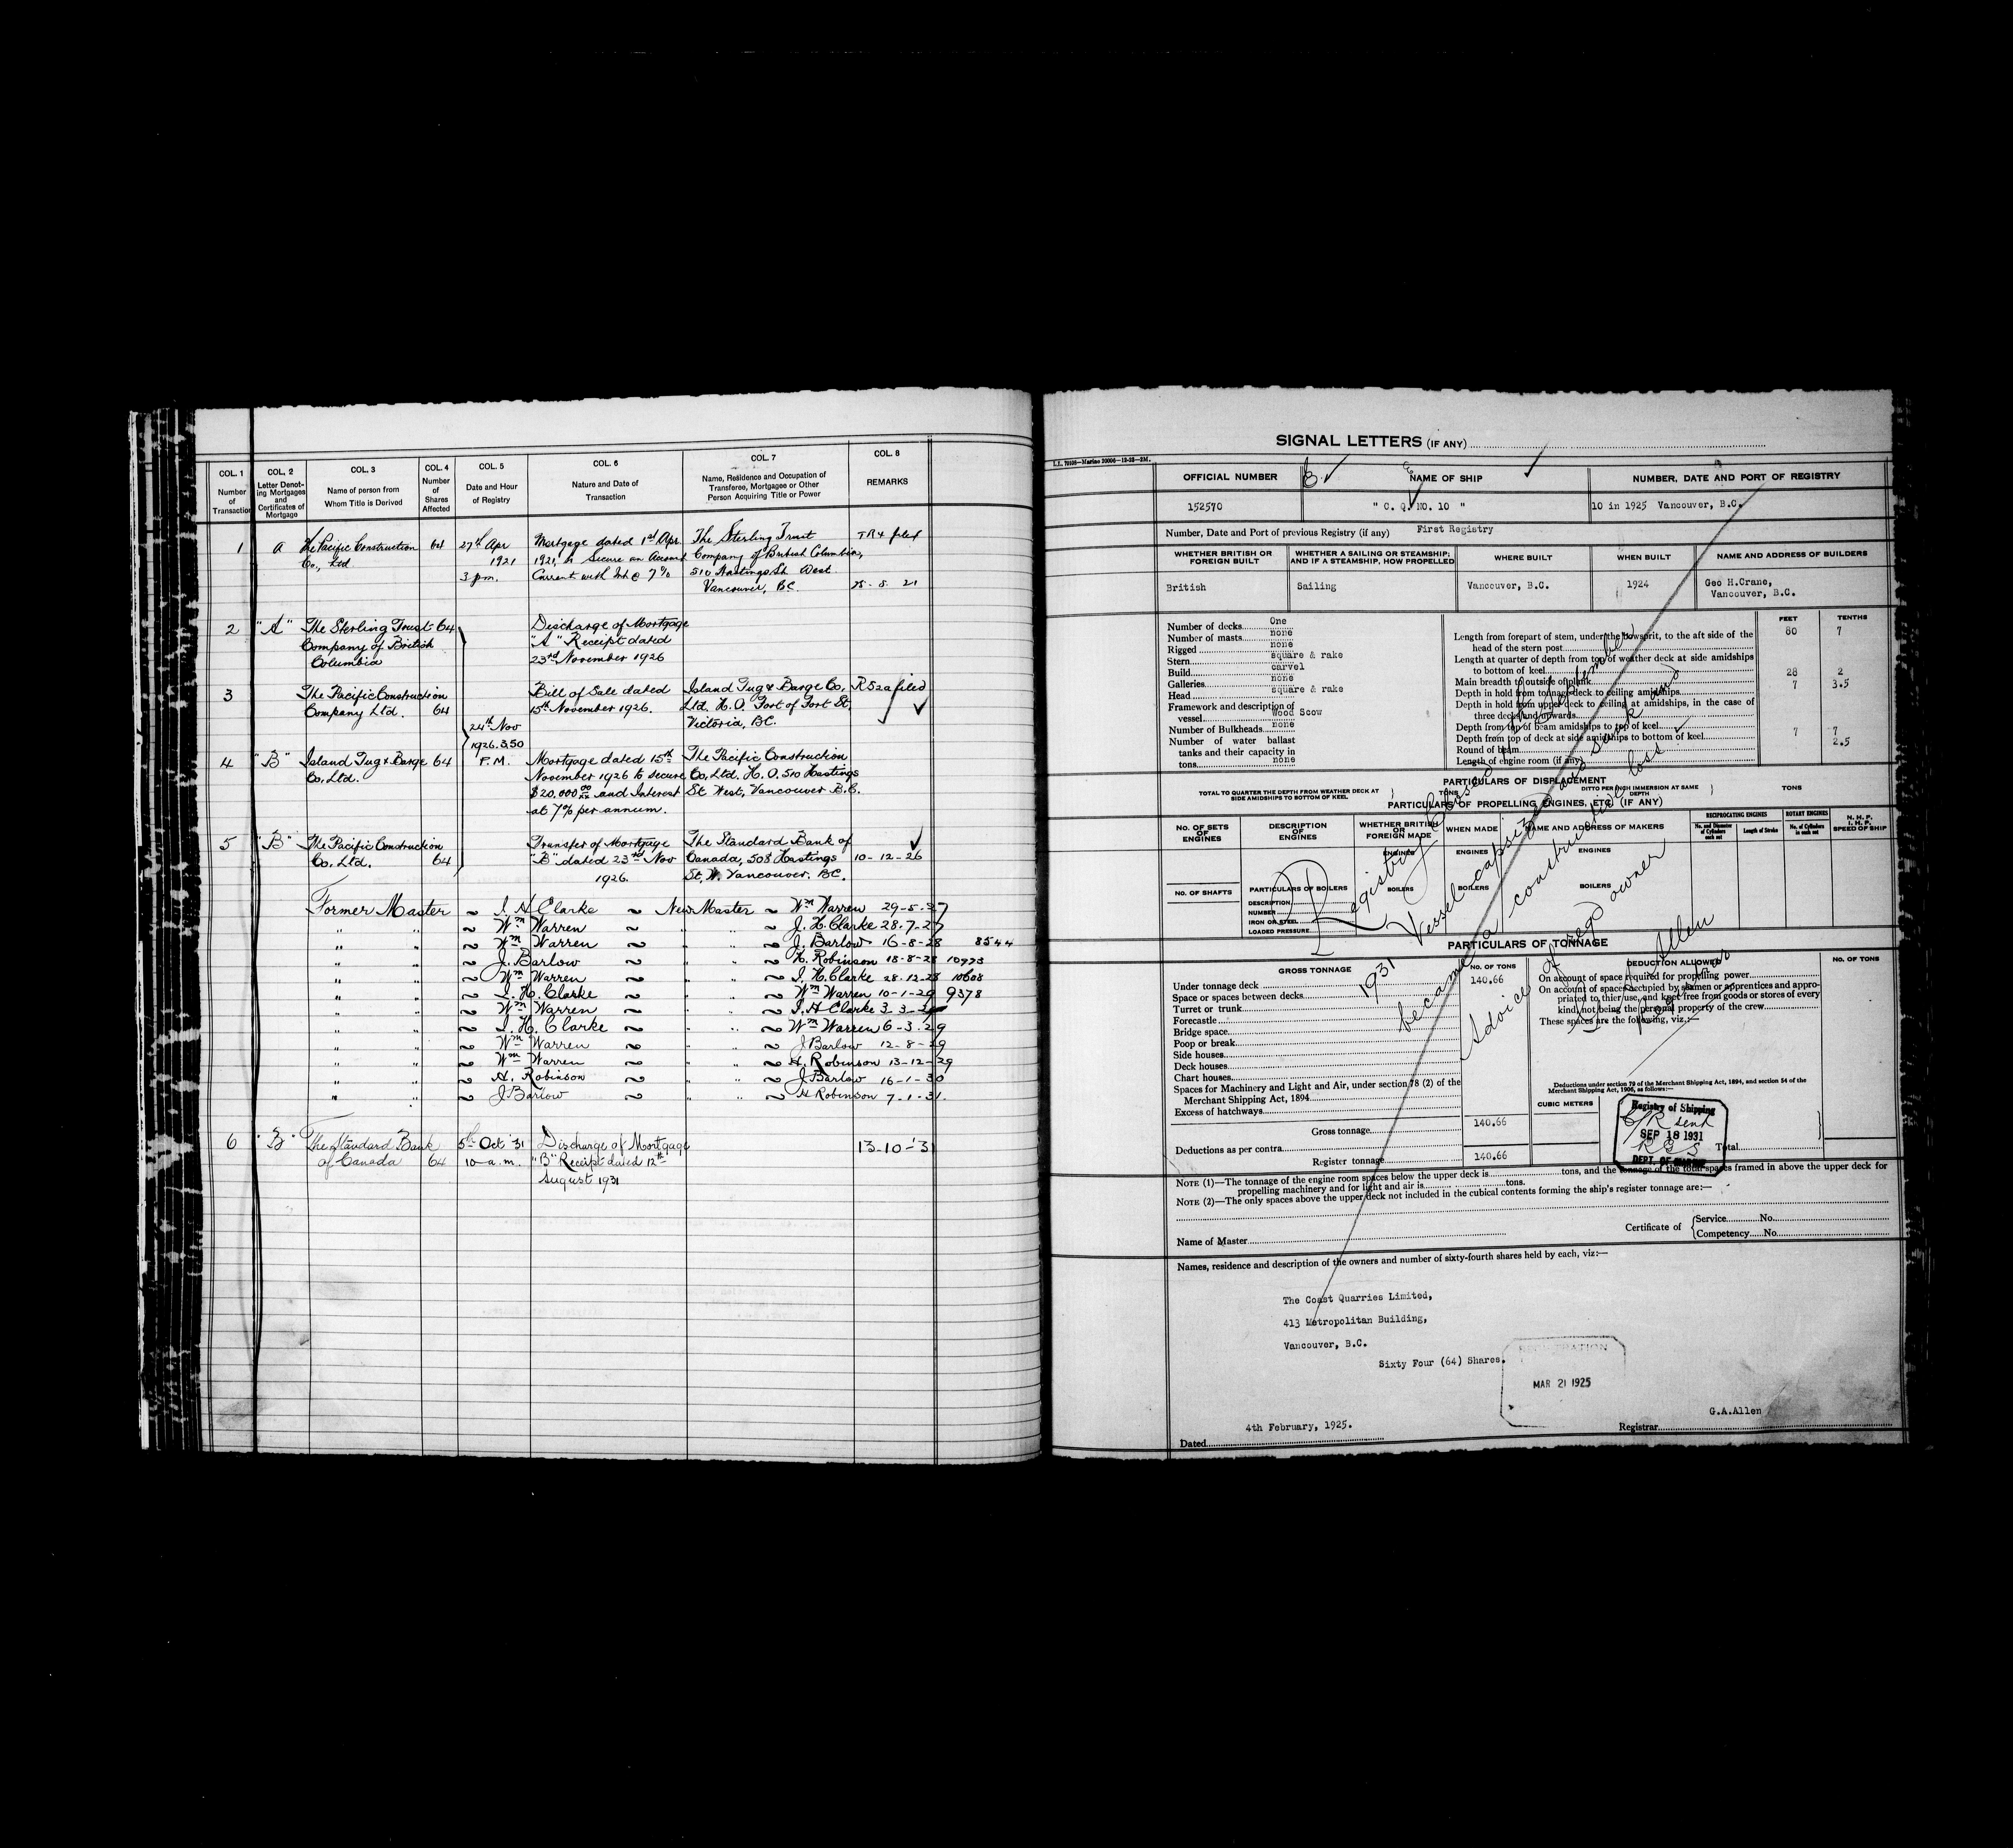 COL. 1
Number
of
Transaction
COL. 2
Letter Denot-
ing Mortgages
and
Certificates of
Mortgage
COL. 3
Name of person from
Whom Title is Derived
COL. 4
Number
of
Shares
Affected
COL. 5
Date and Hour
of Registry
COL. 6
Nature and Date of
Transaction
COL. 7
Name, Residence and Occupation of
Transferee, Mortgagee or Other
Person Acquiring Title or Power
COL. 8
REMARKS
1 A The Pacific Construction 64 27th Apr Mortgage dated 1st Apr The Sterling Trust TR4 filed
Co., Ltd 1921 1921, to Secure an Account Company of British Columbia,
3 pm. Current with Int @ 7% 510 Hastings St. West
Vancouver, BC. 25-5 21
2 "A" The Sterling Trust 64 Discharge of Mortgage
Company of British "A" Receipt dated
Columbia 23rd November 1926
3 The Pacific Construction Bill of Sale dated Island Tug & Barge Co. R52a filed
Company Ltd. 64 15th November 1926. Ltd. H.O. Foot of Fort St,
24th Nov Victoria, BC.
1926. 3.50
4 "B" Island Tug & Barge 64 P.M. Mortgage dated 15th The Pacific Construction
Co. Ltd. November 1926 to secure Co. Ltd. H.O. 510 Hastings
$20,000 00/xx and Interest St West, Vancouver B.C.
at 7% per annum.
5 "B" The Pacific Construction Transfer of Mortgage The Standard Bank of
Co. Ltd. 64 "B" dated 23rd Nov Canada, 508 Hastings 10-12-26
1926. St. W. Vancouver. BC.
Former Master ~ I. H Clarke ~ New Master ~ Wm Warren 29-5-27
" " ~ Wm Warren ~ " " ~ J. H. Clarke 28-7-27
" " ~ Wm Warren ~ " " ~ J. Barlow 16-8-28 8544
" " ~ J. Barlow ~ " " ~ H. Robinson 18-8-28 10973
" " ~ Wm Warren ~ " " ~ I. H. Clarke 28-12-28 10608
" " ~ I. H. Clarke ~ " " ~ Wm Warren 10-1-29 9378
" " ~ Wm Warren ~ " " ~ I. H Clarke 3-3-29
" " ~ I. H. Clarke ~ " " ~ Wm Warren 6-3-29
" " ~ Wm Warren ~ " " ~ J Barlow 12-8-29
" " ~ Wm Warren ~ " " ~ H. Robinson 13-12-29
" " ~ H. Robinson ~ " " ~ J Barlow 16-1-30
" " ~ J Barlow ~ " " ~ H Robinson 7-1-31.
6 "B" The Standard Bank 5th Oct '31 Discharge of Mortgage 13-10-'31
of Canada 64 10-a.m. "B" Receipt dated 12th
August 1931
SIGNAL LETTERS (IF ANY)
OFFICIAL NUMBER
NAME OF SHIP
NUMBER, DATE AND PORT OF REGISTRY
152570
" C. Q. NO. 10 "
10 in 1925 Vancouver, B.C.
Number, Date and Port of previous Registry (if any) First Registry
WHETHER BRITISH OR
FOREIGN BUILT
WHETHER A SAILING OR STEAMSHIP;
AND IF A STEAMSHIP, HOW PROPELLED
WHERE BUILT
WHEN BUILT
NAME AND ADDRESS OF BUILDERS
British
Sailing
Vancouver, B.C.
1924
Geo H.Crane,
Vancouver, B.C.
FEET TENTHS
Number of decks One
Number of masts none
Rigged none
Stern square & rake
Build carvel
Galleries none
Head square & rake
Framework and description of
vessel Wood Scow
Number of Bulkheads none
Number of water ballast
tanks and their capacity in
tons none
Length from forepart of stem, under the bowsprit, to the aft side of the
head of the stern post 80 7
Length at quarter of depth from top of weather deck at side amidships
to bottom of keel
Main breadth to outside of plank 28 2
Depth in hold from tonnage deck to ceiling amidships 7 3.5
Depth in hold from upper deck to ceiling at amidships, in the case of
three decks and upwards
Depth from top of beam amidships to top of keel
Depth from top of deck at side amidships to bottom of keel 7 7
Round of beam 2.5
Length of engine room (if any)
PARTICULARS OF DISPLACEMENT
TOTAL TO QUARTER THE DEPTH FROM WEATHER DECK AT
SIDE AMIDSHIPS TO BOTTOM OF KEEL
TONS
DITTO PER INCH IMMERSION AT SAME
DEPTH
TONS
PARTICULARS OF PROPELLING ENGINES, ETC. (IF ANY)
NO. OF SETS
OF
ENGINES
DESCRIPTION
OF
ENGINES
WHETHER BRITISH
OR
FOREIGN MADE
WHEN MADE
NAME AND ADDRESS OF MAKERS
RECIPROCATING ENGINES
No. and Diameter
of Cylinders
each set
Length of Stroke
ROTARY ENGINES
No. of Cylinders
in each set
N. H. P.
I. H. P.
SPEED OF SHIP
ENGINES
ENGINES
ENGINES
NO. OF SHAFTS
PARTICULARS OF BOILERS
DESCRIPTION
NUMBER
IRON OR STEEL
LOADED PRESSURE
BOILERS
BOILERS
BOILERS
Registry Closed 17th September
1931 Vessel capsized and sunk and
became a constructive loss
Advice of regd owner
G. A. Allen
Registrar
PARTICULARS OF TONNAGE
GROSS TONNAGE
NO. OF TONS
DEDUCTION ALLOWED
NO. OF TONS
Under tonnage deck 140.66
Space or spaces between decks
Turret or trunk
Forecastle
Bridge space
Poop or break
Side houses
Deck houses
Chart houses
Spaces for Machinery and Light and Air, under section 78 (2) of the
Merchant Shipping Act, 1894
Excess of hatchways
Gross tonnage 140.66
Deductions as per contra
Register tonnage 140.66
On account of space required for propelling power
On account of spaces occupied by seamen or apprentices and appro-
priated to thier use, and kept free from goods or stores of every
kind, not being the personal property of the crew
These spaces are the following, viz:—
Deductions under section 79 of the Merchant Shipping Act, 1894, and section 54 of the
Merchant Shipping Act, 1906, as follows:—
CUBIC METERS
Registry of Shipping
C/R send
SEP 18 1931
RGS
DEPT. OF MARINE
Total
NOTE (1)—The tonnage of the engine room spaces below the upper deck is tons, and the tonnage of the total spaces framed in above the upper deck for
propelling machinery and for light and air is tons.
NOTE (2)—The only spaces above the upper deck not included in the cubical contents forming the ship's register tonnage are:—
Name of Master
Certificate of
Service No.
Competency No.
Names, residence and description of the owners and number of sixty-fourth shares held by each, viz:—
The Coast Quarries Limited,
413 Metropolitan Building,
Vancouver, B.C.
Sixty Four (64) Shares.
REGISTRATION
MAR 21 1925
Dated 4th February, 1925.
G.A.Allen
Registrar